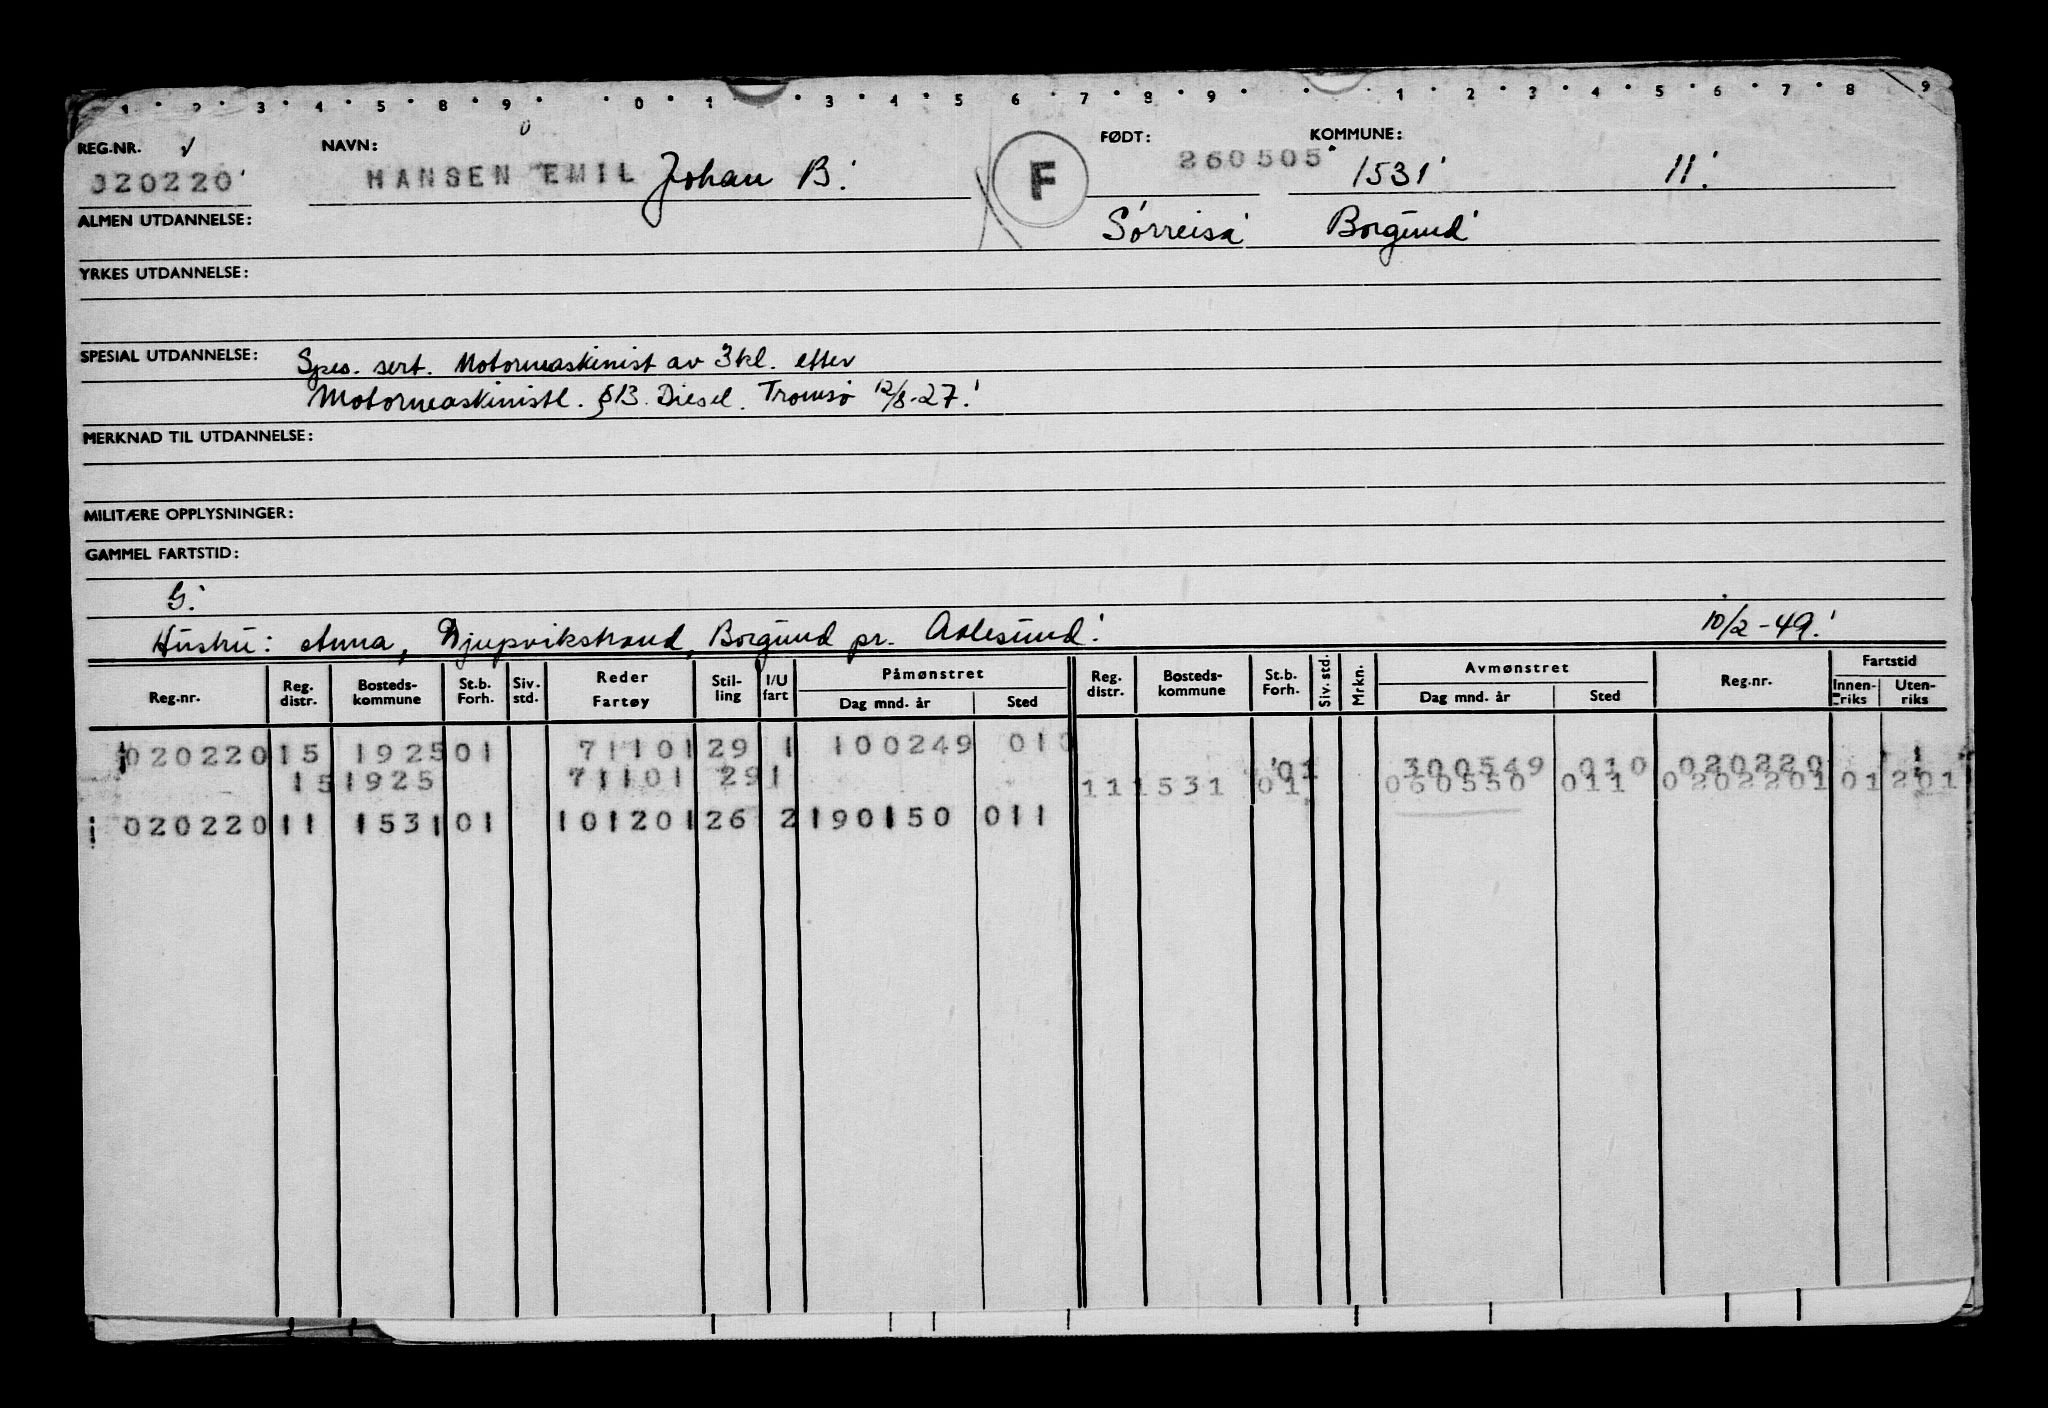 1 2 3 4 5 8 9 0 1 3 4 5 6 7 8 9 1 2 3 4 5 6 7 8 9
REG.NR. NAVN: FØDT: KOMMUNE:
020220 HANSEN EMIL Johan B. F 260505 1531 11.
ALMEN UTDANNELSE: Sørreisa Borgund
YRKES UTDANNELSE:
SPESIAL UTDANNELSE: Spes. sert. Motormaskinist av 3kl. etter
Motormaskinistl. §13. Diesel. Tromsø 12/8-27.
MERKNAD TIL UTDANNELSE:
MILITÆRE OPPLYSNINGER:
GAMMEL FARTSTID:
G.
Hustru: Anna, Djupvikstrand, Borgund pr. Aalesund. 10/2-49.
Reg.nr. Reg. distr. Bosteds-kommune St.b. Forh. Siv. std. Reder Fartøy Stil-ling I/U fart Påmønstret Dag mnd. år Sted Reg. distr. Bosteds-kommune St.b. Forh. Siv. std. Mrkn. Avmønstret Dag mnd. år Sted Reg.nr. Fartstid Innen-riks Uten-riks
020220 15 1925 01 71101 29 1 100249 010 01 300549 010 020220
15 1925 71101 29 1 11 1531 01 060550 011 020220 1 01 2 01
020220 11 1531 01 101201 26 2 190150 011